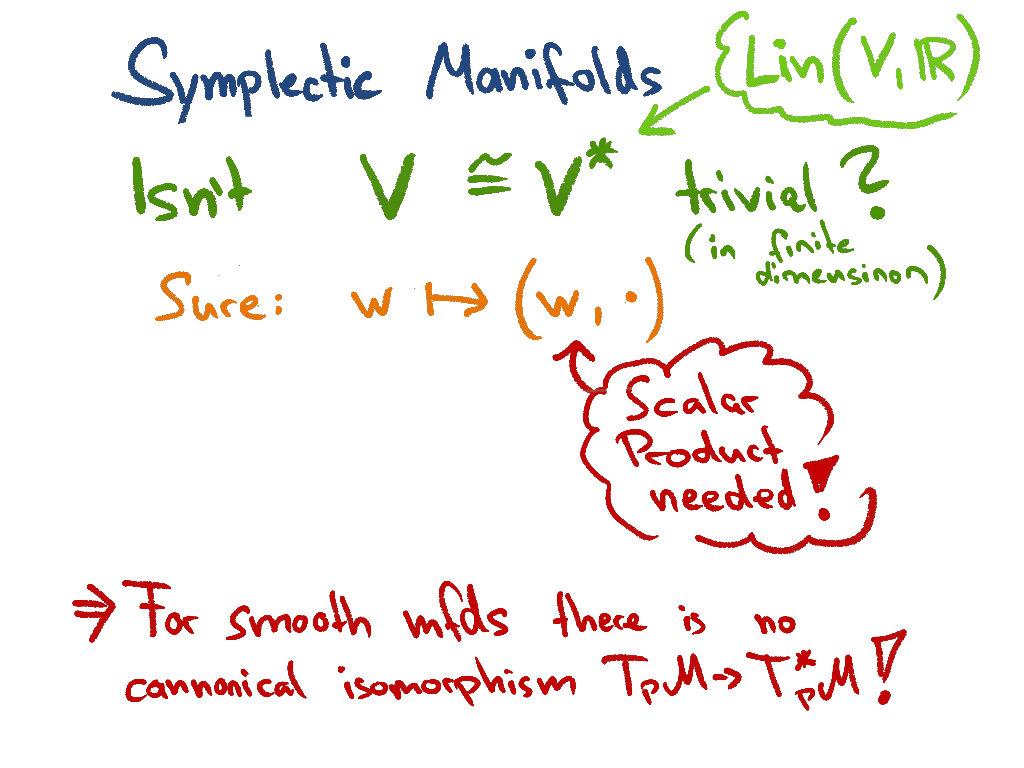 Symplectic Manifolds
{Lin(V, ℝ)
Isn't V ≅ V* trivial?
(in finite
dimensinon)
Sure: w ↦ (w, ·)
Scalar
Product
needed!
⇒ For smooth mfds there is no
cannonical isomorphism TₚM → T*ₚM!